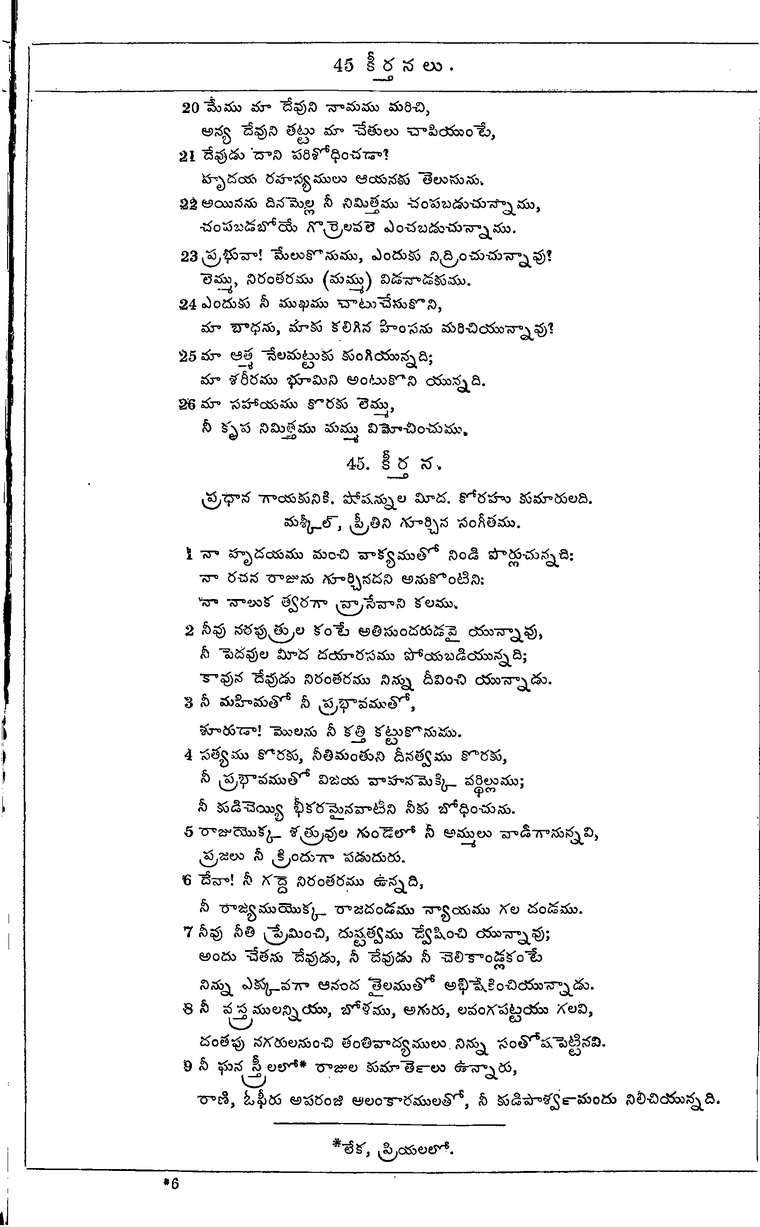 45 కీర్తనలు.
20 మేము మా దేవుని నామము మరిచి,
అన్య దేవుని తట్టు మా చేతులు చాపియుంటే,
21 దేవుడు దాని పరిశోధించడా?
హృదయ రహస్యములు ఆయనకు తెలుసును.
22 అయినను దినమెల్ల నీ నిమిత్తము చంపబడుచున్నాము,
చంపబడబోయే గొర్రెలవలె ఎంచబడుచున్నాము.
23 ప్రభువా! మేలుకొనుము, ఎందుకు నిద్రించుచున్నావు?
లెమ్ము, నిరంతరము (మమ్ము) విడనాడకుము.
24 ఎందుకు నీ ముఖము చాటుచేసుకొని,
మా బాధను, మాకు కలిగిన హింసను మరిచియున్నావు?
25 మా ఆత్మ నేలమట్టుకు కుంగియున్నది;
మా శరీరము భూమిని అంటుకొని యున్నది.
26 మా సహాయము కొరకు లెమ్ము,
నీ కృప నిమిత్తము మమ్ము విమోచించుము.
45. కీర్తన.
ప్రధాన గాయకునికి. షోషన్నుల మీద. కోరహు కుమారులది.
మశ్కీల్, ప్రీతిని గూర్చిన సంగీతము.
1 నా హృదయము మంచి వాక్యముతో నిండి పొర్లుచున్నది:
నా రచన రాజును గూర్చినదని అనుకొంటిని:
నా నాలుక త్వరగా వ్రాసేవాని కలము.
2 నీవు నరపుత్రుల కంటే అతిసుందరుడవై యున్నావు,
నీ పెదవుల మీద దయారసము పోయబడియున్నది;
కావున దేవుడు నిరంతరము నిన్ను దీవించి యున్నాడు.
3 నీ మహిమతో నీ ప్రభావముతో,
శూరుడా! మొలను నీ కత్తి కట్టుకొనుము.
4 సత్యము కొరకు, నీతిమంతుని దీనత్వము కొరకు,
నీ ప్రభావముతో విజయ వాహనమెక్కి వర్ధిల్లుము;
నీ కుడిచెయ్యి భీకరమైనవాటిని నీకు బోధించును.
5 రాజుయొక్క శత్రువుల గుండెలో నీ అమ్ములు వాడిగానున్నవి,
ప్రజలు నీ క్రిందుగా పడుదురు.
6 దేవా! నీ గద్దె నిరంతరము ఉన్నది,
నీ రాజ్యముయొక్క రాజదండము న్యాయము గల దండము.
7 నీవు నీతి ప్రేమించి, దుష్టత్వము ద్వేషించి యున్నావు;
అందు చేతను దేవుడు, నీ దేవుడు నీ చెలికాండ్లకంటే
నిన్ను ఎక్కువగా ఆనంద తైలముతో అభిషేకించియున్నాడు.
8 నీ వస్త్రములన్నియు, బోళము, అగురు, లవంగపట్టయు గలవి,
దంతపు నగరులనుంచి తంతివాద్యములు నిన్ను సంతోషపెట్టినవి.
9 నీ ఘన స్త్రీలలో* రాజుల కుమార్తెలు ఉన్నారు,
రాణి, ఓఫీరు అపరంజి అలంకారములతో, నీ కుడిపార్శ్వమందు నిలిచియున్నది.
*లేక, ప్రియలలో.
*6